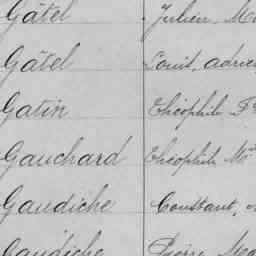 Gâtel Julien, M
Gâtel Louis, adrie
Gatin Théophile F
Gauchard Théophile M
Gaudiche Constant,
Gaudiche Pierre Ma